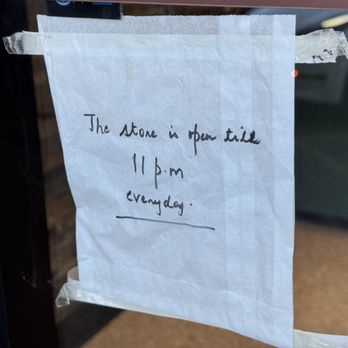 The store is open till
11 p.m
everyday.